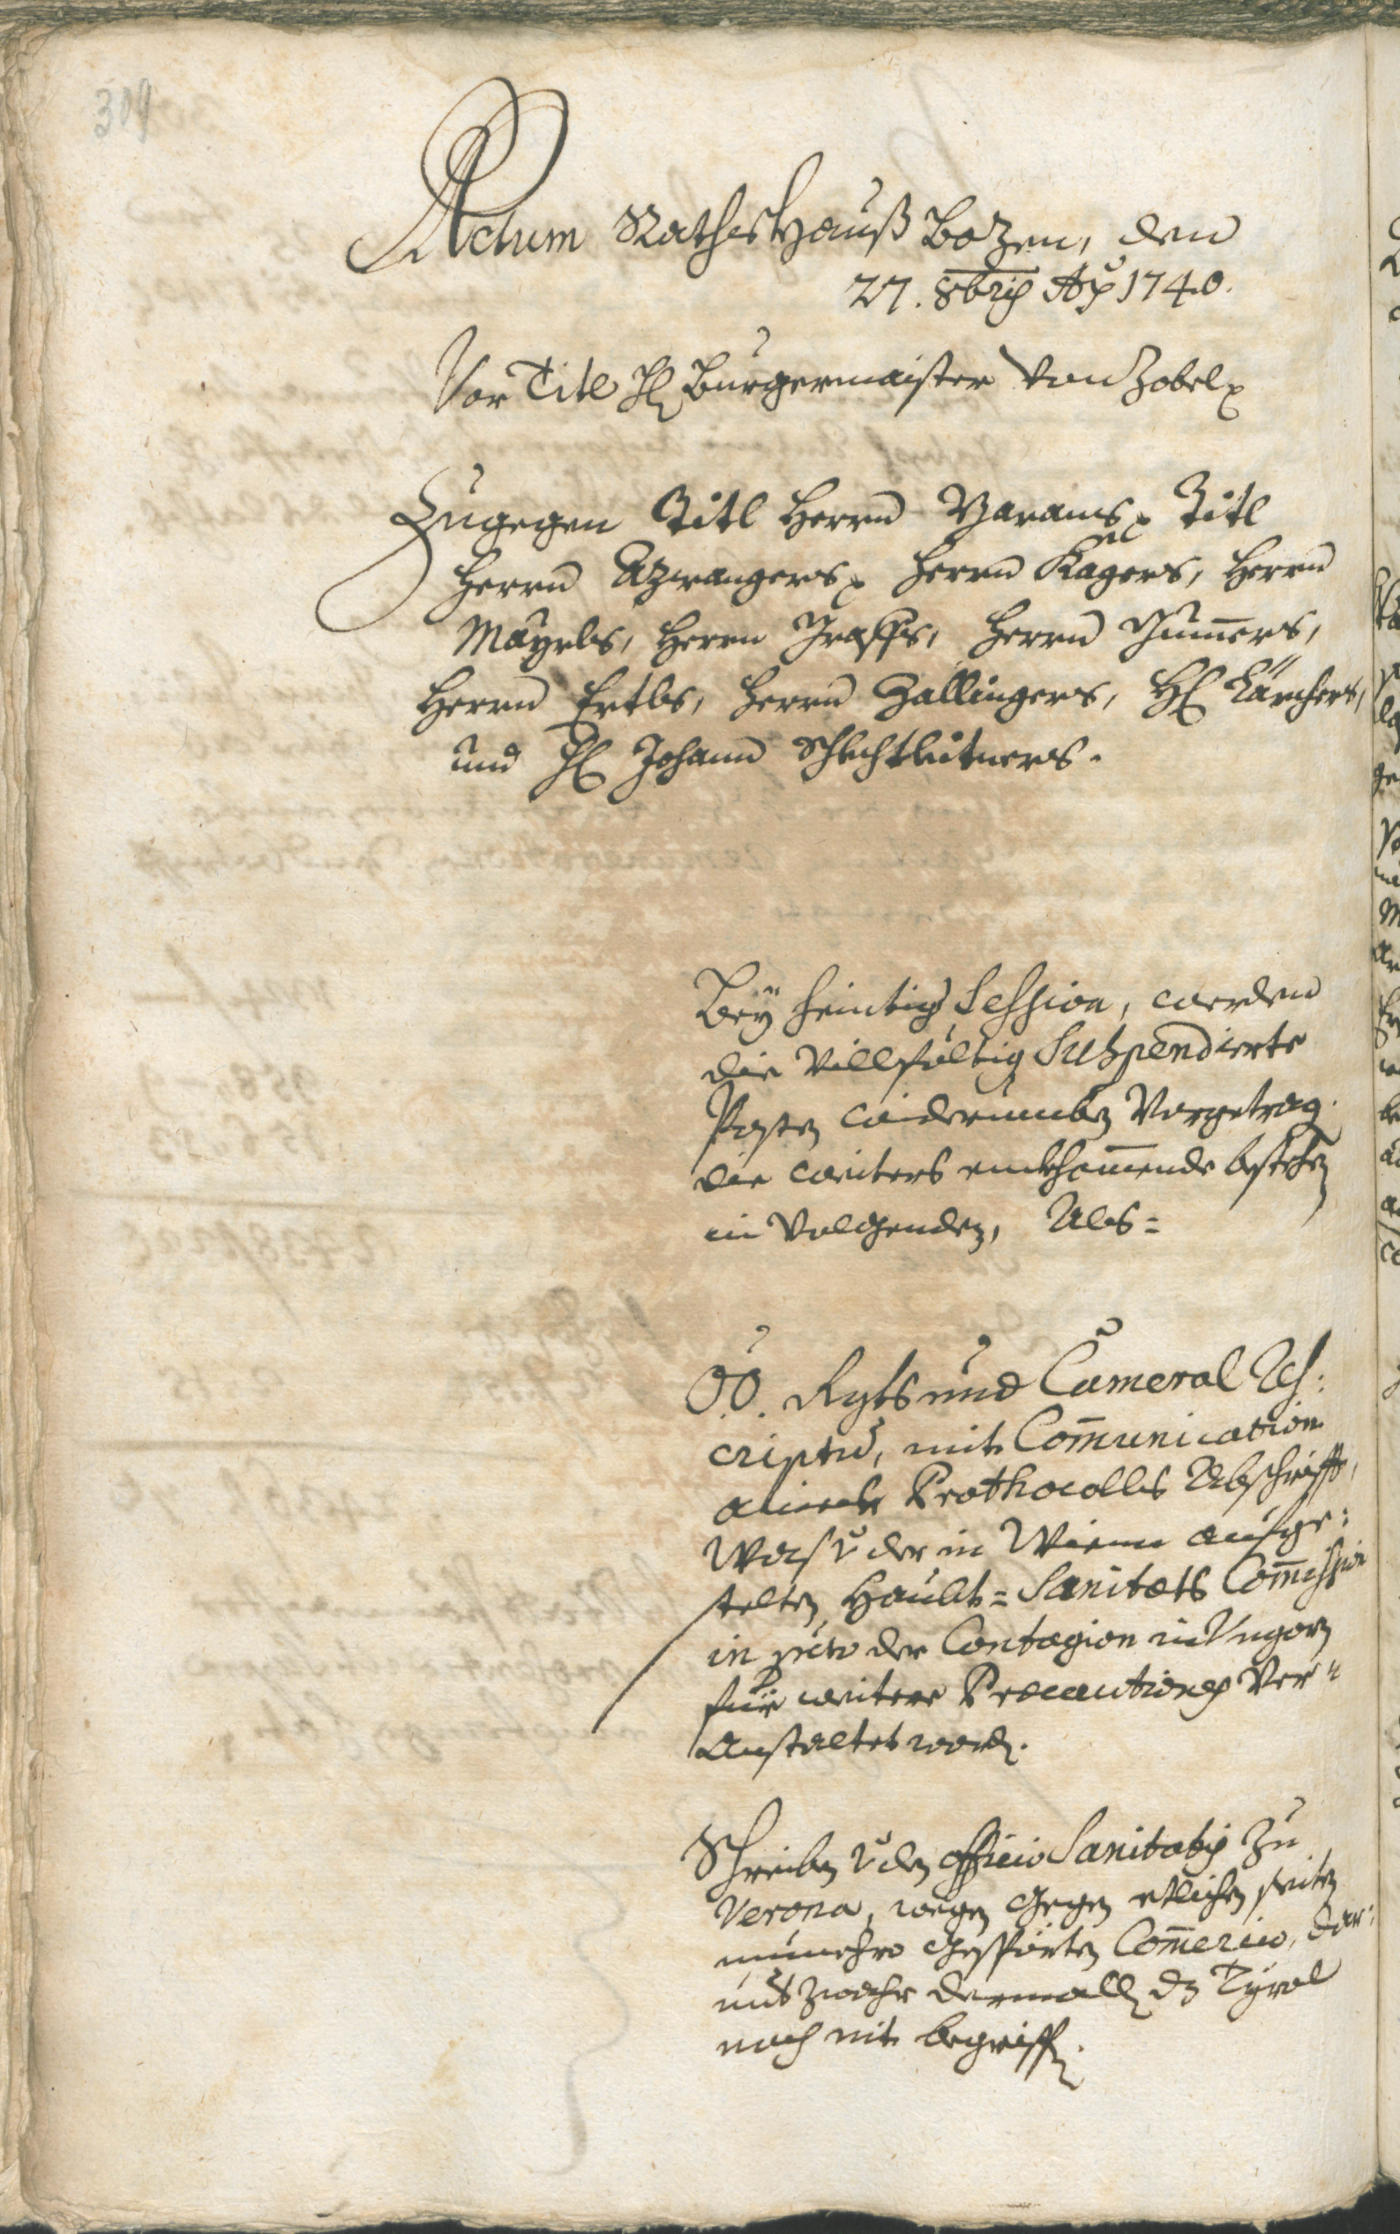 309
Actum Rathshauß Bozen, den
27. 8bris Ao 1740.
Vor Titl H Burgermaister von Zobel
Zugegen Titl Herrn Titl
Herrn Azwangers, Herrn Kagers, Herrn
Mayrls, Herrn Graffs, Herrn Gumers,
Herrn Ertls, Herrn Zallingers, H Kärchers,
und H Johann Schlechtleitners.
Bey heintig Session, werden
die villfältig Suspendierte
Posten widerumben Vorgetrag.
die weiters einkhomende bestehen
in volgenden, Als=
OÖ. Rgts und Cameral Res:
criptum, mit Communication
aines Prothocolls Abschrifft,
Was v der in Wienn aufge:
stelten Haubt= Sanitets Commission
in pcto der Contagion in Ungarn
für weitere Praecautiones Ver=
anstaltet worden.
Schreiben v den officio Sanitatis zu
Verona, wegen gegen etlichen seiten
nunmehro gespörten Commercio, dar:
unt zwahr dermallen dz Tyrol
noch nit begriffen.